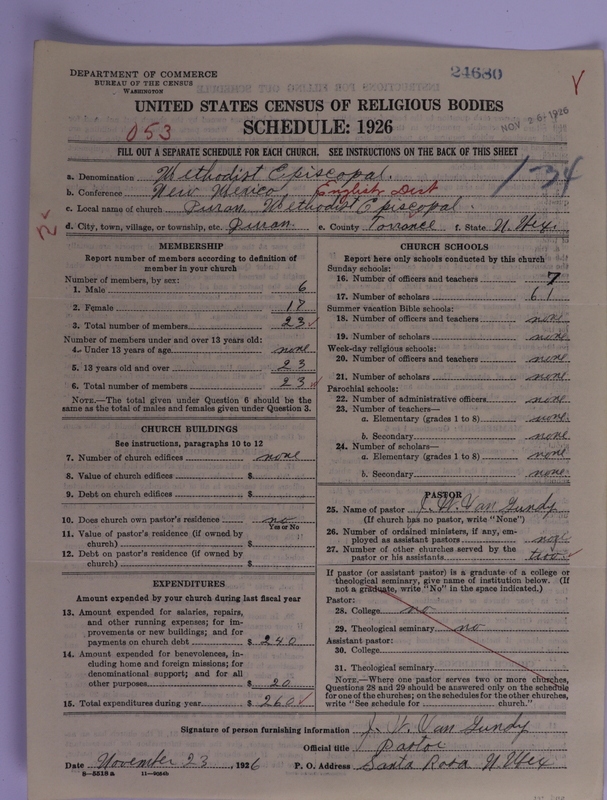 DEPARTMENT OF COMMERCE
BUREAU OF THE CENSUS
WASHINGTON
24680
UNITED STATES CENSUS OF RELIGIOUS BODIES
NOV 26 1926
053
SCHEDULE: 1926
FILL OUT A SEPARATE SCHEDULE FOR EACH CHURCH. SEE INSTRUCTIONS ON THE BACK OF THIS SHEET
134
a. Denomination Methodist Episcopal.
b. Conference New Mexico English Dist
c. Local name of church Duran Methodist Episcopal
d. City, town, village, or township, etc. Duran. e. County Torrance f. State N. Mex.
MEMBERSHIP
Report number of members according to definition of
member in your church
Number of members, by sex:
1. Male 6
2. Female 17
3. Total number of members 23
Number of members under and over 13 years old:
4. Under 13 years of age none
5. 13 years old and over 23
6. Total number of members 23
NOTE.—The total given under Question 6 should be
same as the total of males and females given under Question 3.
CHURCH BUILDINGS
See instructions, paragraphs 10 to 12
7. Number of church edifices none
8. Value of church edifices $
9. Debt on church edifices $
10. Does church own pastor's residence no
Yes or No
11. Value of pastor's residence (if owned by
church) $
12. Debt on pastor's residence (if owned by
church) $
EXPENDITURES
Amount expended by your church during last fiscal year
13. Amount expended for salaries, repairs,
and other running expenses; for im-
provements or new buildings; and for
payments on church debt $ 240
14. Amount expended for benevolences, in-
cluding home and foreign missions; for
denominational support; and for all
other purposes $ 20
15. Total expenditures during year $ 260
CHURCH SCHOOLS
Report here only schools conducted by this church
Sunday schools:
16. Number of officers and teachers 7
17. Number of scholars 61
Summer vacation Bible schools:
18. Number of officers and teachers none
19. Number of scholars none
Week-day religious schools:
20. Number of officers and teachers none
21. Number of scholars none
Parochial schools:
22. Number of administrative officers none
23. Number of teachers—
a. Elementary (grades 1 to 8) none
b. Secondary none
24. Number of scholars—
a. Elementary (grades 1 to 8) none
b. Secondary none
PASTOR
25. Name of pastor J. W. Van Gundy
(If church has no pastor, write "None")
26. Number of ordained ministers, if any, em-
ployed as assistant pastors none
27. Number of other churches served by the
pastor or his assistants two
If pastor (or assistant pastor) is a graduate of a college or
theological seminary, give name of institution below. (If
not a graduate, write "No" in the space indicated.)
Pastor:
28. College no
29. Theological seminary no
Assistant pastor:
30. College
31. Theological seminary
NOTE.—Where one pastor serves two or more churches,
Questions 28 and 29 should be answered only on the schedule
for one of the churches; on the schedules for the other churches,
write "See schedule for church."
Signature of person furnishing information J. W. Van Gundy
Official title Pastor
Date November 23, 1926 P. O. Address Santa Rosa N. Mex
8—5518 a 11—9554b